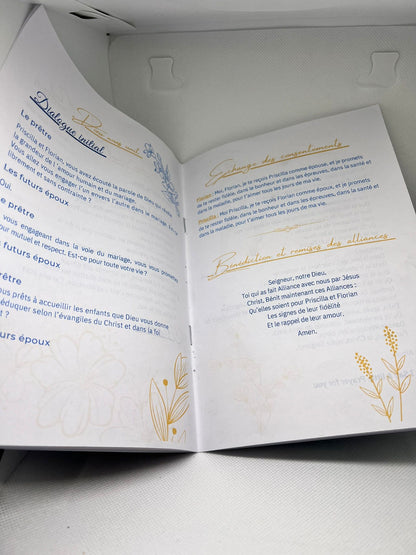 Dialogue initial
Le prêtre
Priscilla et Florian, vous avez écouté la parole de Dieu qui a révélé
la grandeur de l'amour humain et du mariage.
Vous allez vous engager l'un envers l'autre dans le mariage. Est-ce
librement et sans contrainte ?
Les futurs époux
Oui.
e prêtre
vous engageant dans la voie du mariage, vous vous promettez
our mutuel et respect. Est-ce pour toute votre vie ?
futurs époux
rêtre
us prêts à accueillir les enfants que Dieu vous donne
éduquer selon l'évangiles du Christ et dans la foi
?
urs époux
Echange des consentements
Florian : Moi, Florian, je te reçois Priscilla comme épouse, et je promets
de te rester fidèle, dans le bonheur et dans les épreuves, dans la santé et
dans la maladie, pour t'aimer tous les jours de ma vie.
Priscilla : Moi Priscilla, je te reçois Florian comme époux, et je promets
de te rester fidèle, dans le bonheur et dans les épreuves, dans la santé et
dans la maladie, pour t'aimer tous les jours de ma vie.
Bénédiction et remises des alliances
Seigneur, notre Dieu,
Toi qui as fait Alliance avec nous par Jésus
Christ, Bénit maintenant ces Alliances :
Qu'elles soient pour Priscilla et Florian
Les signes de leur fidélité
Et le rappel de leur amour.
Amen.